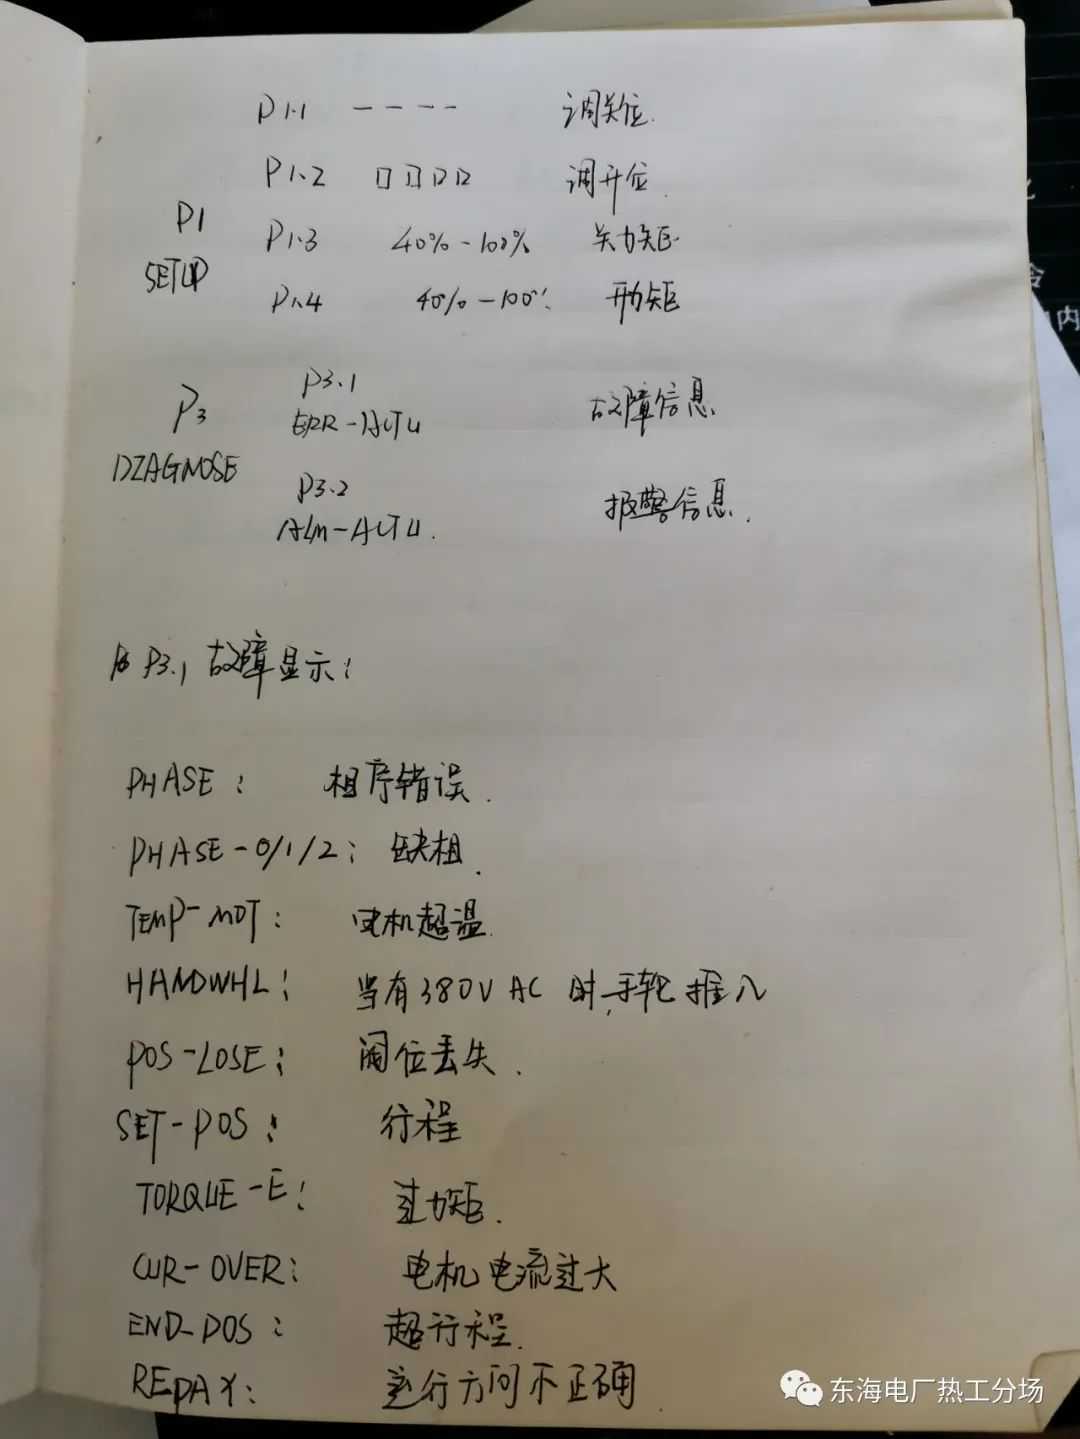 P1.1 ---- 调关位.
P1.2 口口口口 调开位.
P1
P1.3 40%-100% 关力矩
SETUP
P1.4 40%-100% 开力矩
P3.1
P3 故障信息
ERR-ACTU
DIAGNOSE
P3.2
报警信息.
ALM-ACTU.
P3.1 故障显示:
PHASE: 相序错误.
PHASE-0/1/2: 缺相.
TEMP-MOT: 电机超温.
HANDWHL: 当有380V AC 时,手轮推入
POS-LOSE: 阀位丢失.
SET-POS: 行程
TORQUE-E: 过力矩.
CUR-OVER: 电机电流过大
END-POS: 超行程.
REPAY: 运行方向不正确
东海电厂热工分场
内